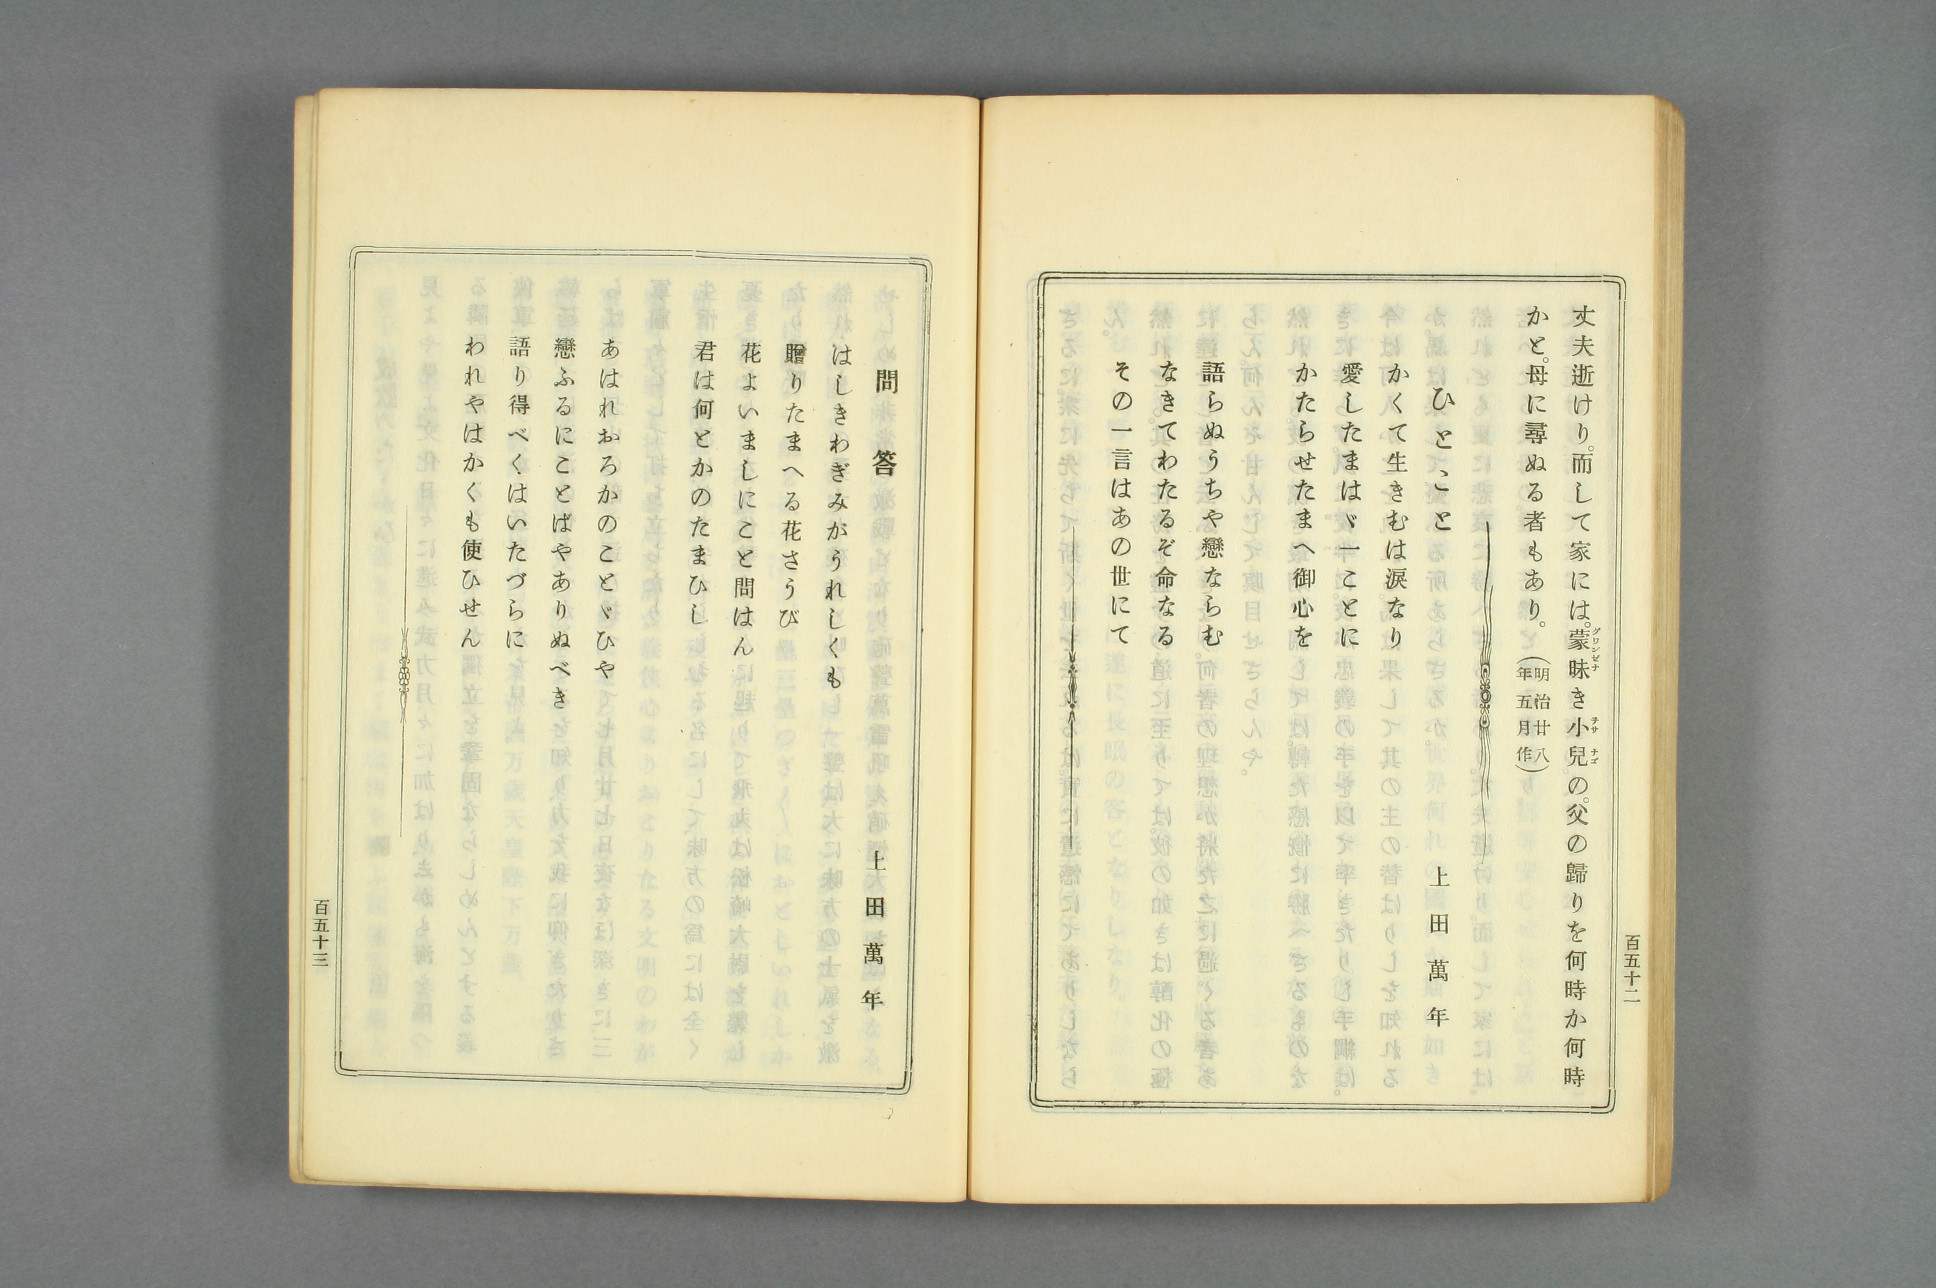 丈夫逝けり。而して家には。蒙昧き小兒の。父の歸りを何時か何時
グワンゼナ
チサ
ナゴ
かと。母に尋ぬる者もあり。(明治廿八年五月作)
ひとこと
上田萬年
かくて生きむは涙なり
愛したまはゞ一ことに
かたらせたまへ御心を
語らぬうちや戀ならむ
なきてわたるぞ命なる
その一言はあの世にて
百五十二
問答
上田萬年
はしきわぎみがうれしくも
贈りたまへる花さうび
花よいましにこと問はん
君は何とかのたまひし
あはれおろかのことゞひや
戀ふるにことばやありぬべき
語り得べくはいたづらに
われやはかくも使ひせん
百五十三